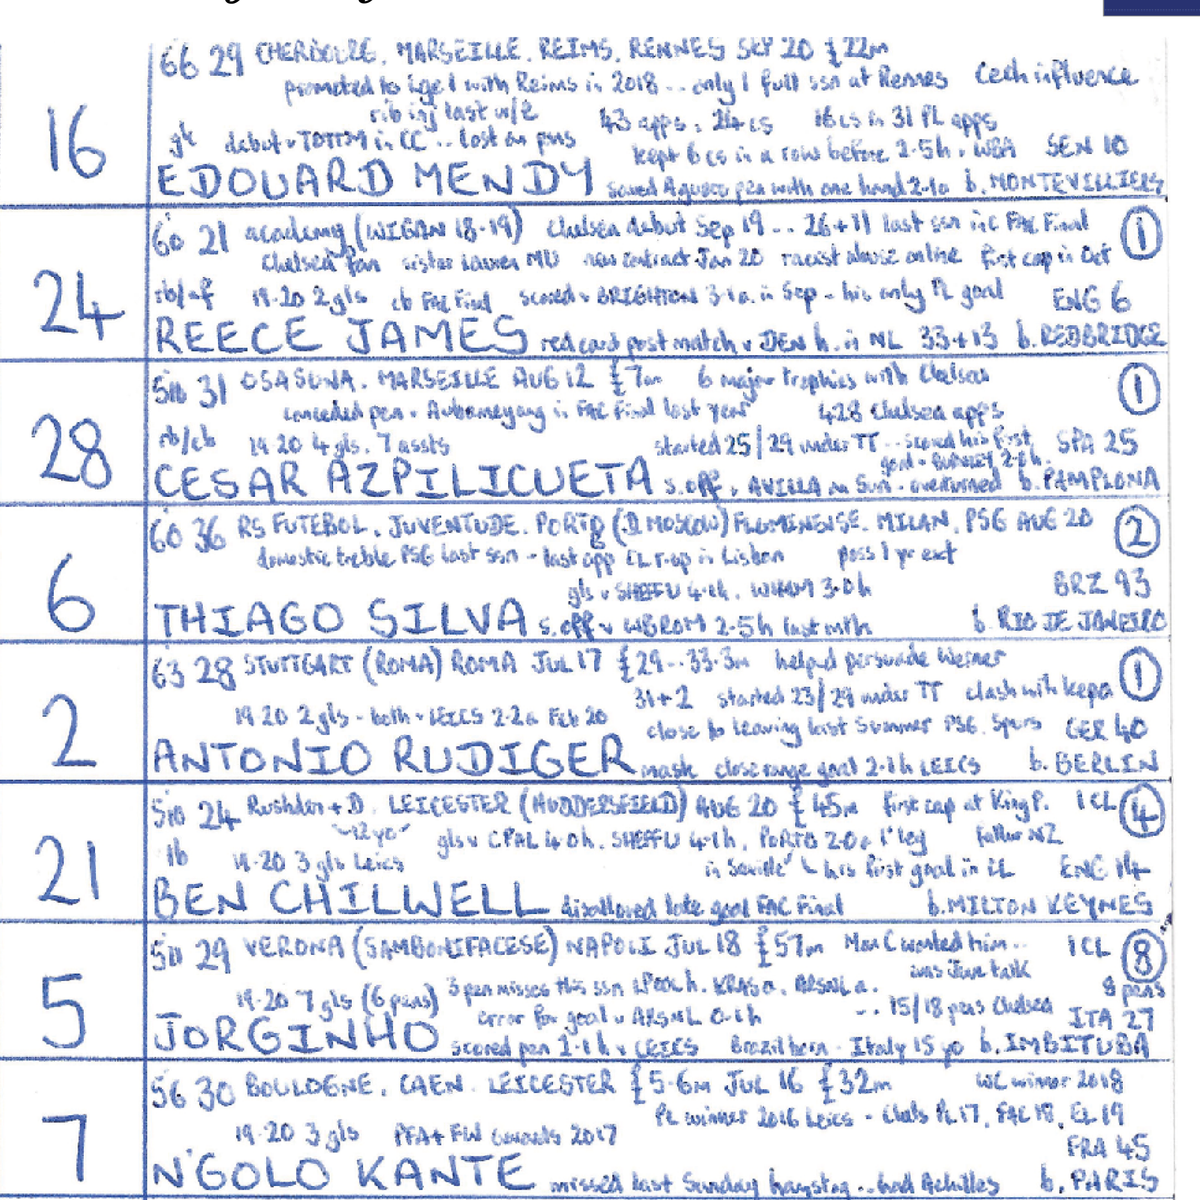 16
66 29 CHERBOURG. MARSEILLE. REIMS. RENNES SEP 20 £22m
promoted to Lge 1 with Reims in 2018 .. only 1 full ssn at Rennes Cech influence
rib inj last w/e 43 apps. 24 cs 16 cs in 31 PL apps
gk debut v TOTTM in CC .. lost on pens kept 6 cs in a row before 2-5 h. WBA SEN 10
EDOUARD MENDY saved Aguero pen with one hand 2-1a b. MONTEVILLIERS
24
60 21 academy (WIGAN 18-19) Chelsea debut Sep 19 .. 26+11 last ssn inc FAC Final 1
Chelsea fan sister Lauren MU new contract Jan 20 racist abuse online first cap in Oct
rb/cf 19-20 2 gls cb FAC Final scored v BRIGHTON 3-1a. in Sep - his only PL goal ENG 6
REECE JAMES red card post match v DEN h. in NL 33+13 b. REDBRIDGE
28
510 31 OSASUNA. MARSEILLE AUG 12 £7m 6 major trophies with Chelsea 1
conceded pen v Aubameyang in FAC Final last year 428 Chelsea apps
rb/cb 19-20 4 gls. 7 assts started 25/29 under TT .. scored his first SPA 25
goal v BURNLEY 2-0 h.
CESAR AZPILICUETA s.off v AVILLA on Sun - overturned b. PAMPLONA
6
60 36 RS FUTEBOL. JUVENTUDE. PORTO B (D MOSCOW) FLUMINENSE. MILAN. PSG AUG 20 2
domestic treble PSG last ssn - last app CL r-up in Lisbon poss 1 yr ext
gls v SHEFFU 4-1h. WHAM 3-0h BRZ 93
THIAGO SILVA s.off v WBROM 2-5h last mth b. RIO DE JANEIRO
2
63 28 STUTTGART (ROMA) ROMA JUL 17 £29 .. 33.3m helped persuade Werner 1
31+2 started 23/29 under TT clash with Kepa
19-20 2 gls - both v LEICS 2-2a Feb 20 close to leaving last Summer PSG. Spurs GER 40
ANTONIO RUDIGER mask close range goal 2-1h LEICS b. BERLIN
21
510 24 Rushden + D. LEICESTER (HUDDERSFIELD) AUG 20 £45m first cap at King P. 1CL 4
~12 yo gls v CPAL 4-0h. SHEFFU 4-1h. PORTO 2-0a 1st leg father NZ
lb 19-20 3 gls Leics in Seville his first goal in CL ENG 14
BEN CHILWELL disallowed late goal FAC Final b. MILTON KEYNES
5
511 29 VERONA (SAMBONIFACESE) NAPOLI JUL 18 £57m Man C wanted him .. 1CL 8
was June talk 8 pens
19-20 7 gls (6 pens) 3 pen misses this ssn LPOOL h. KRAS a. ARSNL a.
error for goal v ARSNL 0-1h .. 15/18 pens Chelsea ITA 27
JORGINHO scored pen 2-1h v LEICS Brazil born - Italy 15 yo b. IMBITUBA
7
56 30 BOULOGNE. CAEN. LEICESTER £5.6m JUL 16 £32m WC winner 2018
PL winner 2016 Leics - Chels PL 17. FAC 18. EL 19
19-20 3 gls PFA + FW awards 2017 FRA 45
N'GOLO KANTE missed last Sunday hamstrg .. had Achilles b. PARIS